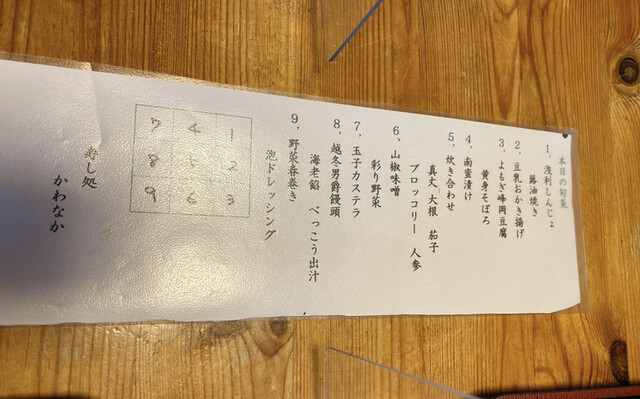 本日の旬菜
1，浅利しんじょ
蕗油焼き
2，豆乳おかき揚げ
3，よもぎ峰岡豆腐
黄身そぼろ
4，南蛮漬け
5，炊き合わせ
真丈 大根 茄子
ブロッコリー 人参
6，山椒味噌
彩り野菜
7，玉子カステラ
8，越冬男爵饅頭
海老餡 べっこう出汁
9，野菜春巻き
泡ドレッシング
7 4 1
8 5 2
9 6 3
寿し処
かわなか